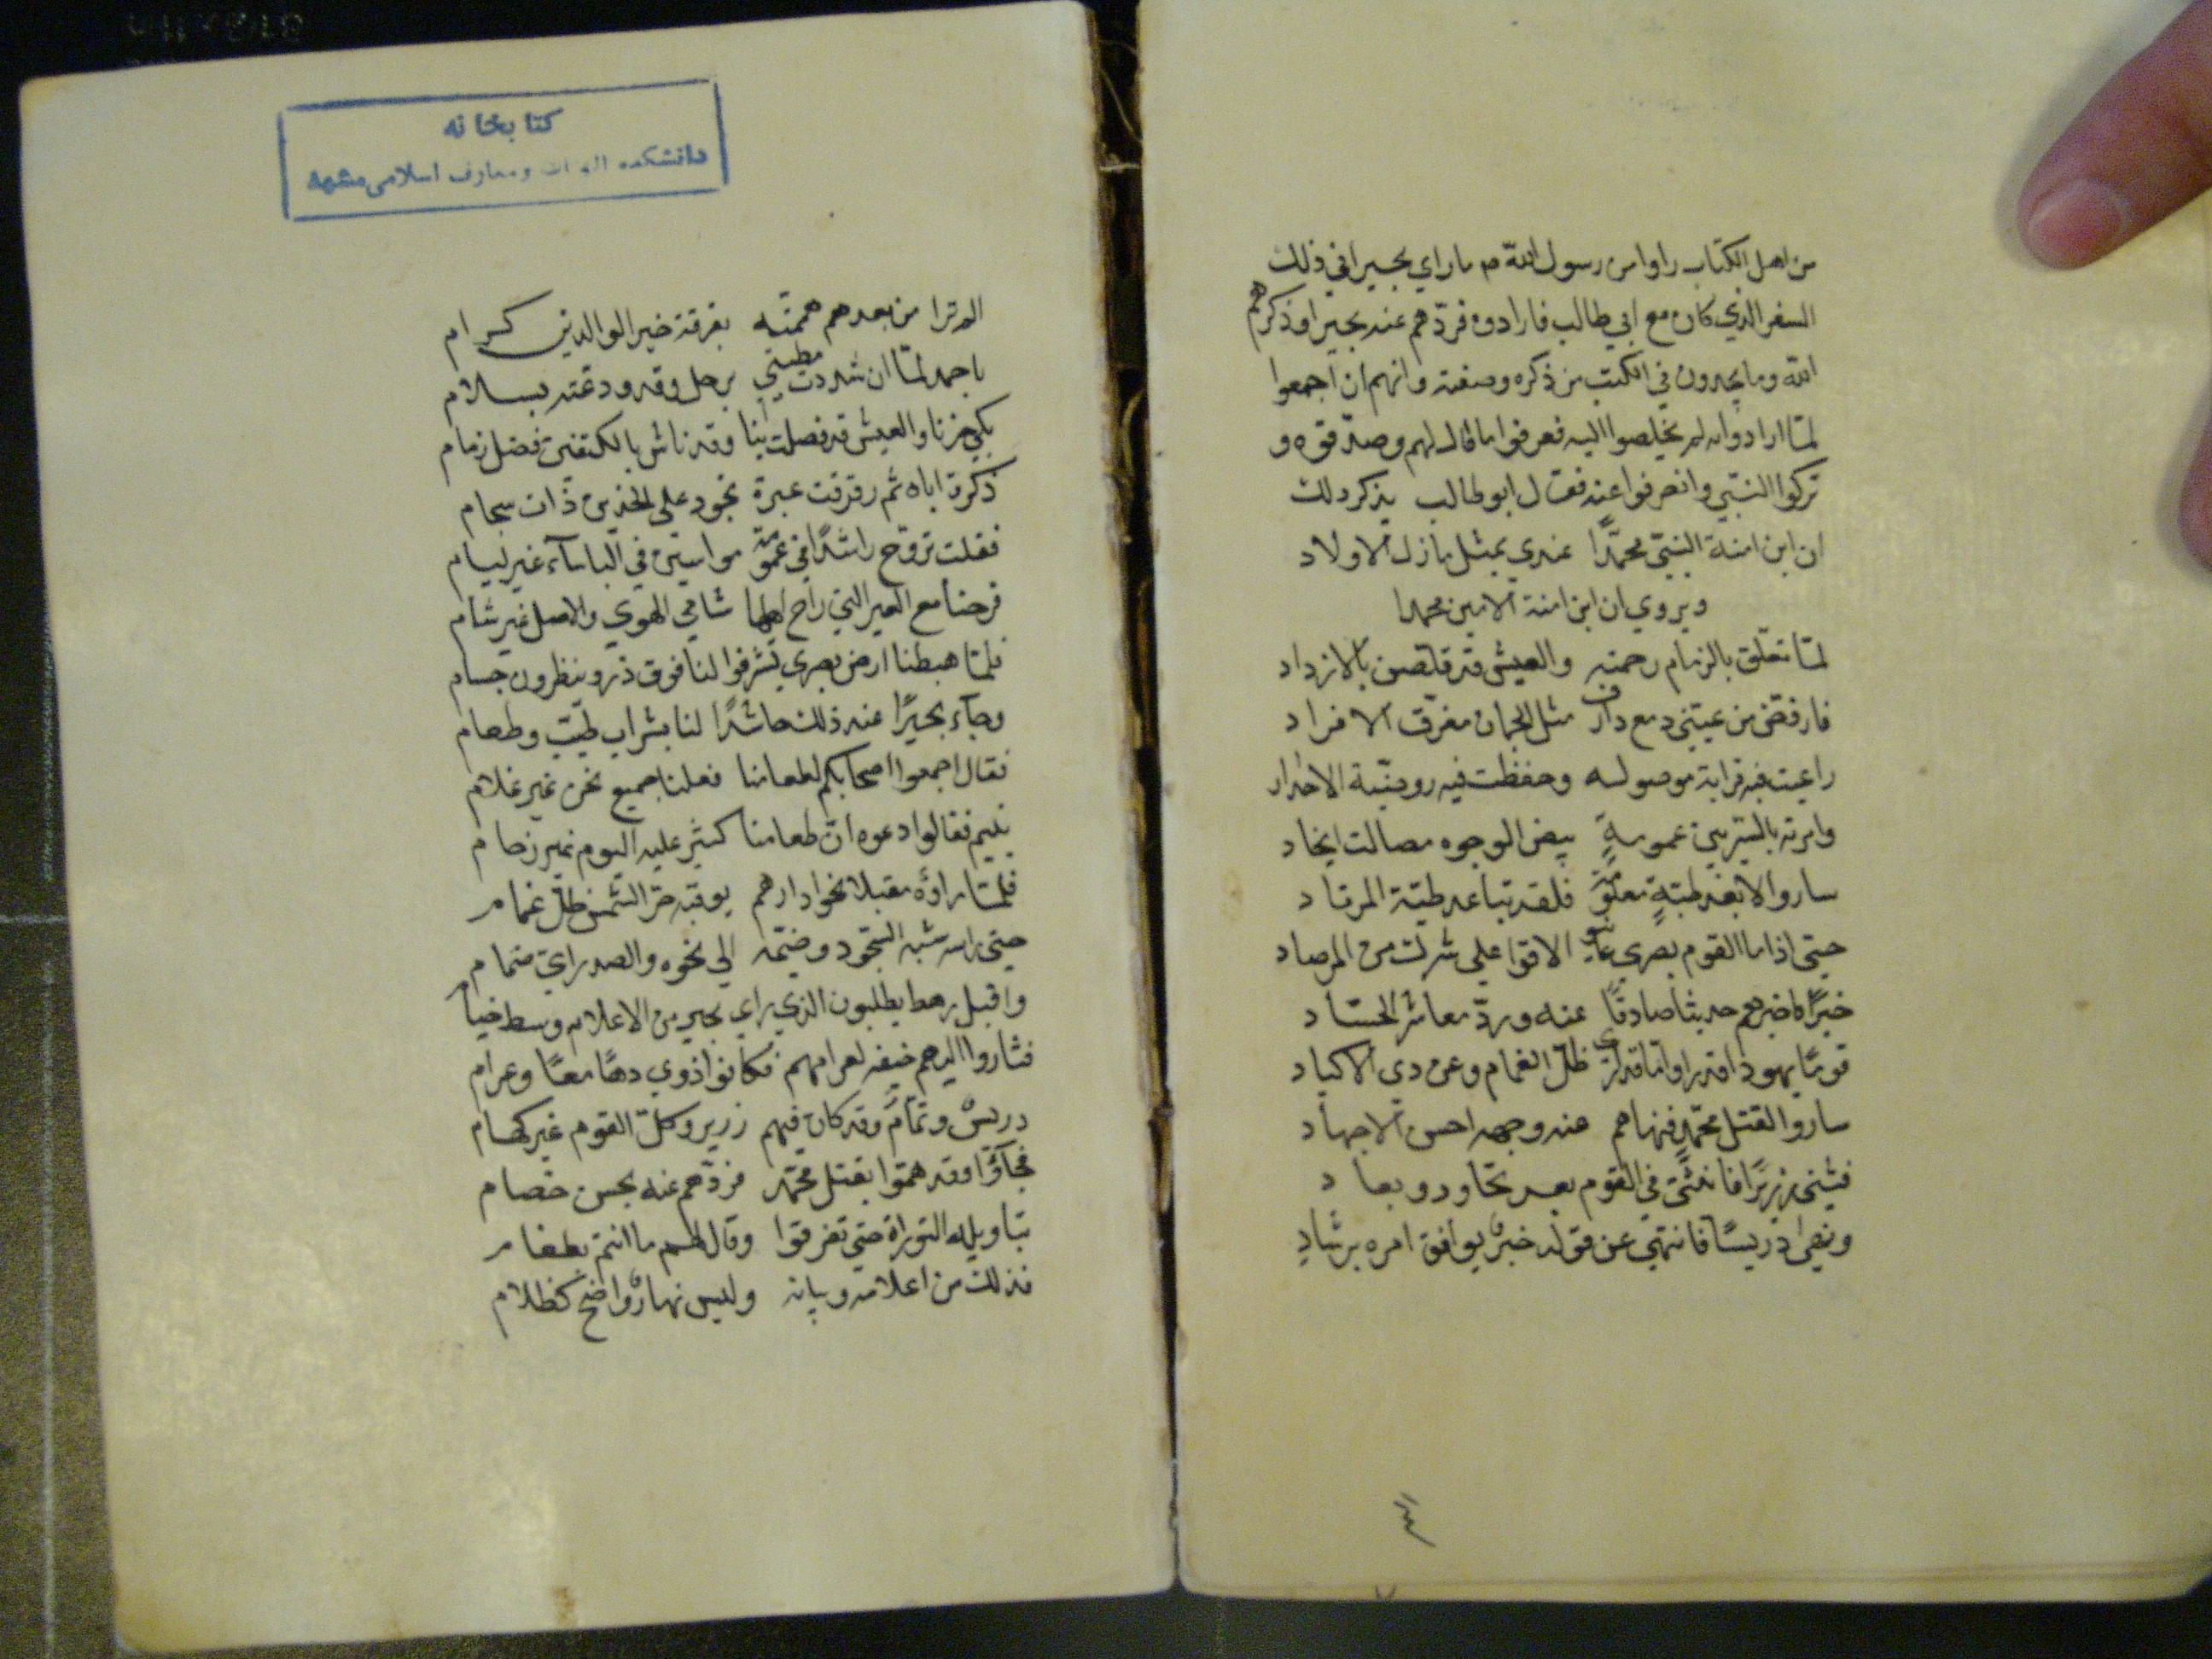 من اهل الكتاب راوا من رسول الله ص ما راي بحيرا في ذلك
السفر الذي كان مع ابي طالب فارادوه فردّهم عنه بحيرا وذكرهم
الله وما يجدون في الكتب من ذكره وصفته وانهم ان اجمعوا
لمّا ارادوا به لم يخلصوا اليه فعرفوا ما قال لهم وصدّقوه و
تركوا النبيّ وانصرفوا عنه فقال ابو طالب يذكر ذلك
ان ابن امنة النبيّ محمّدًا عندي بمثل منازل الاولاد
ويروي ان ابن امنة الامين محمدا
لمّا تعلّق بالزمام رحمته والعيش قد قلّصن بالازواد
فارفضّ من عينيّ دمع ذارف مثل الجمان مفرّق الافراد
راعيت فيه قرابة موصوله وحفظت فيه وصيّة الاجداد
وامرته بالسير بين عمومةٍ بيض الوجوه مصالت انجاد
ساروا لابعد طيّةٍ معلومة فلقد تباعد طيّة المرتاد
حتى اذا ما القوم بصري عاينوا لاقوا علي شرك من المرصاد
حبرًا فاخبرهم حديثا صادقًا عنه وردّ معاشر الحسّاد
قومًا يهودا قد راوا ما قد راي ظلّ الغمام وعن ذي الاكياد
ساروا لقتل محمّدٍ فنهاهم عنه وجهد احسن الاجهاد
فثني زبيرًا فانثني في القوم بعد تجاود وبعاد
ونهي دريسًا فانتهي عن قوله حبرٌ يوافق امره برشادِ
الم ترا من بعد هم هممته بفرقة خير الوالدين كرام
باحمد لمّا ان شددت مطيتي برحل وقد ودعته بسلام
بكي حزنا والعيش قد فصلت بنا وقد ناش بالكفين فضل زمام
ذكرة اباه ثم رقرقت عبرة تجود علي الخدين ذات سجام
فقلت تروّح راشدًا في عمومة مواسين في الباسآء غير ليام
فرحنا مع العير التي راح اهلها شامي الهوي والاصل غير شام
فلمّا هبطنا ارض بصري تشرفوا لنا فوق دور ينظرون جسام
وجآء بحيرًا عند ذلك حاشدًا لنا بشراب طيّب وطعام
فقال اجمعوا اصحابكم لطعامنا فقلنا جميع نحن غير غلام
يتيم فقالوا ادعوه ان طعامنا كثير عليه اليوم غير زحام
فلمّا راوه مقبلا نحو دارهم يوقيه حرّ الشمس ظلّ غمام
حني راسه شبه السجود وضمّه الي نحره والصدر اي ضمام
واقبل رهط يطلبون الذي راي بحير من الاعلام وسط خيام
فثاروا اليهم خيفه لعرامهم فكانوا ذوي دهًا معًا وعرام
دريسٌ وتمّامٌ وقد كان فيهم زرير وكلّ القوم غير كهام
فجآؤا وقد همّوا بقتل محمّد فردّهم عنه بحسن خصام
بتاويله التوراة حتى تفرقوا وقال لهم ما انتم بطغام
فذلك من اعلامه وبيانه وليس نهارٌ واضح كظلام
كتابخانه
دانشكده الهيات ومعارف اسلامى مشهد